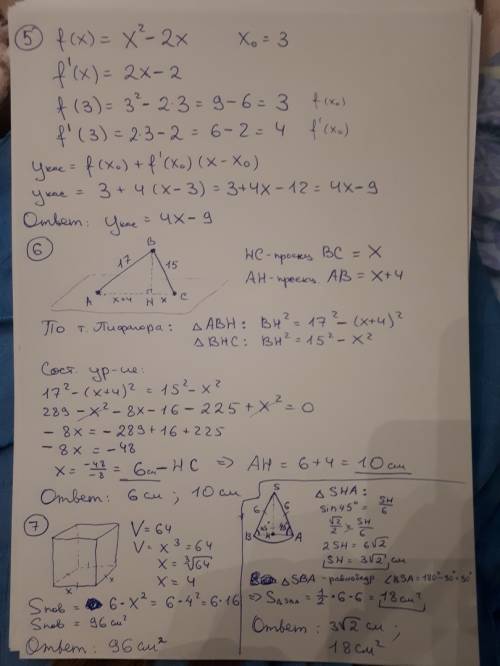 5 f(x) = x² - 2x x₀ = 3
f'(x) = 2x - 2
f(3) = 3² - 2·3 = 9 - 6 = 3 f(x₀)
f'(3) = 2·3 - 2 = 6 - 2 = 4 f'(x₀)
yкас = f(x₀) + f'(x₀)(x - x₀)
yкас = 3 + 4(x - 3) = 3 + 4x - 12 = 4x - 9
Ответ: yкас = 4x - 9
6
B
17 15
A x+4 H x C
HC - проекц BC = x
AH - проекц. AB = x+4
По т. Пифагора: △ABH: BH² = 17² - (x+4)²
△BHC: BH² = 15² - x²
Сост. ур-ие:
17² - (x+4)² = 15² - x²
289 - x² - 8x - 16 - 225 + x² = 0
-8x = -289 + 16 + 225
-8x = -48
x = -48/-8 = 6см - HC ⇒ AH = 6+4 = 10см
Ответ: 6 см; 10 см
7
x x
V = 64
V = x³ = 64
x = ∛64
x = 4
Sпов = 6·x² = 6·4² = 6·16
Sпов = 96 см²
Ответ: 96 см²
S
6 6
B H A
△SHA:
sin45° = SH/6
√2/2 = SH/6
2SH = 6√2
SH = 3√2 см
△SBA - равнобедр
⇒ S△SBA = 1/2 · 6 · 6 = 18см²
Ответ: 3√2 см;
18 см²